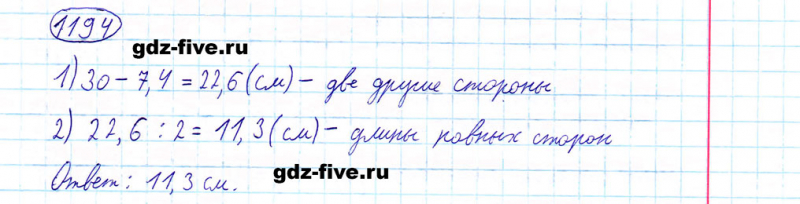 1194
gdz-five.ru
1) 30 - 7,4 = 22,6 (см) - две другие стороны
2) 22,6 : 2 = 11,3 (см) - длины равных сторон
Ответ: 11,3 см.
gdz-five.ru